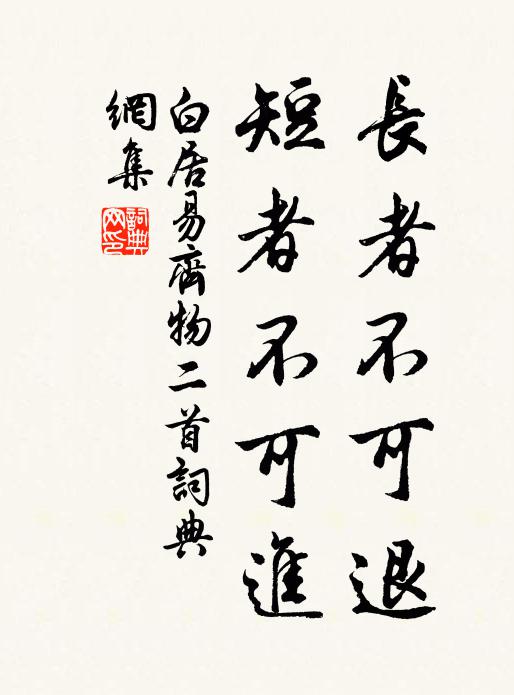 長者不可退
短者不可進
白居易齊物二首詞典
網集
詞典
网印